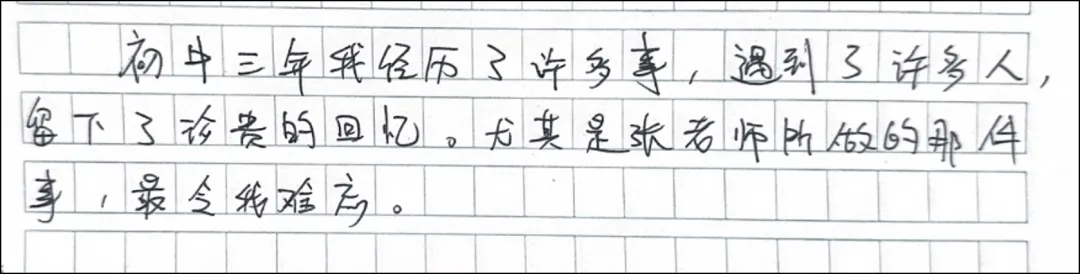 初中三年我经历了许多事，遇到了许多人，
留下了珍贵的回忆。尤其是张老师所做的那件
事，最令我难忘。